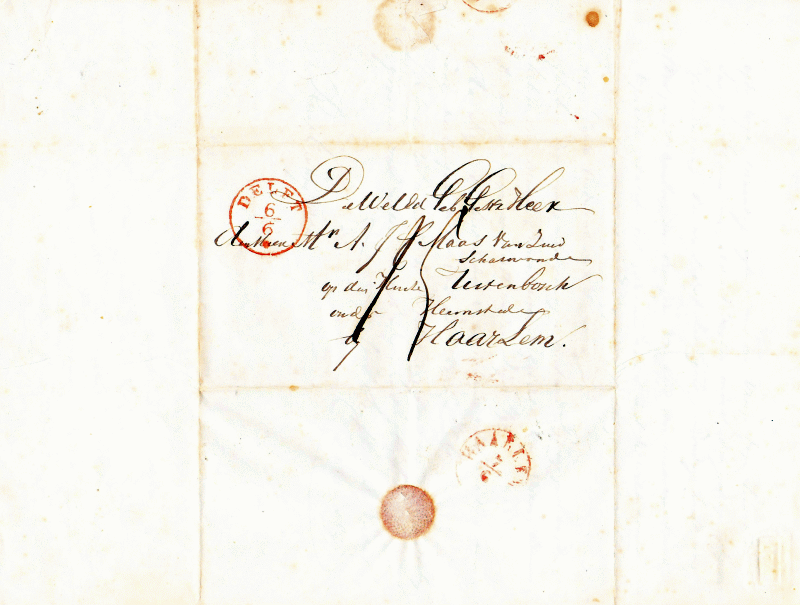 DELFT
6
6
De WelEd Geb Gestr Heer
Mr A. J. F. Maas Van Zuid
Scharwoude
op den Huize Iepenbosch
onder Heemstede
by Haarlem.
HAARLEM